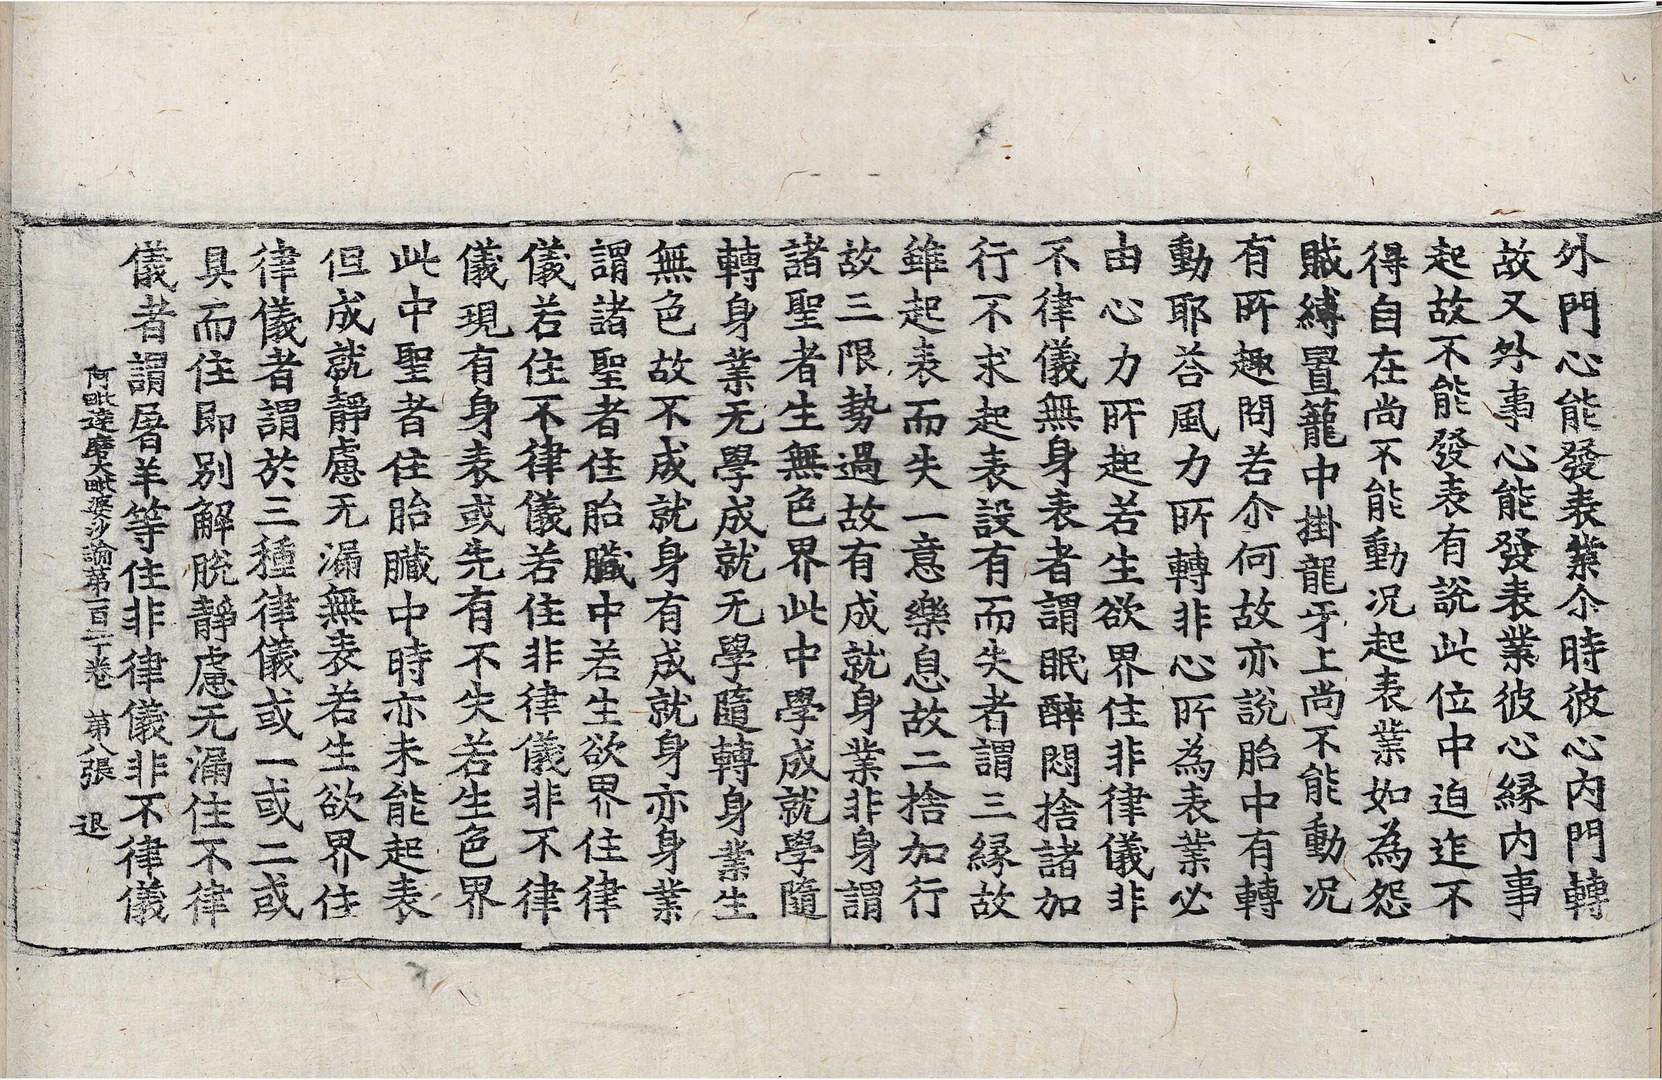 外門心能發表業尒時彼心內門轉
故又外事心能發表業彼心緣內事
起故不能發表有說此位中迫迮不
得自在尚不能動况起表業如為怨
賊縛置籠中掛龍牙上尚不能動况
有所趣問若尒何故亦說胎中有轉
動耶荅風力所轉非心所為表業必
由心力所起若生欲界住非律儀非
不律儀無身表者謂眠醉悶捨諸加
行不求起表設有而失者謂三緣故
雖起表而失一意樂息故二捨加行
故三限勢過故有成就身業非身謂
諸聖者生無色界此中學成就學隨
轉身業无學成就无學隨轉身業生
無色故不成就身有成就身亦身業
謂諸聖者住胎臟中若生欲界住律
儀若住不律儀若住非律儀非不律
儀現有身表或先有不失若生色界
此中聖者住胎臟中時亦未能起表
但成就靜慮无漏無表若生欲界住
律儀者謂於三種律儀或一或二或
具而住即別解脫靜慮无漏住不律
儀者謂屠羊等住非律儀非不律儀
阿毗達磨大毗婆沙論第一百二十卷 第八張 退